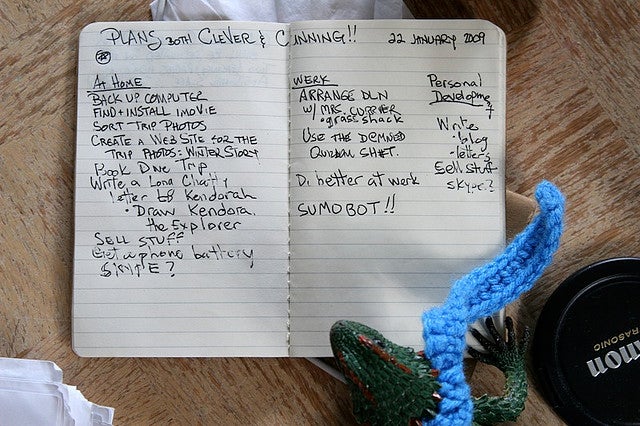 PLANS BOTH CLEVER & CUNNING!!
22 JANUARY 2009
AT HOME
BACK UP COMPUTER
FIND + INSTALL IMOVIE
SORT TRIP PHOTOS
CREATE A WEB SITE FOR THE
TRIP PHOTOS: WINTER STORY
Book Dive Trip
Write a Long Chatty
letter to Kendorah
• Draw Kendora
the Explorer
SELL STUFF
Get a phone battery
SKYPE?
WERK
ARRANGE DLN
W/ MRS. CURRIER
• grass shack
USE THE DEMNED
SH*T.
Do better at werk
SUMOBOT!!
Personal
Developme
Write
• blog
• letters
Sell stuff
skype?
non
RASONIC